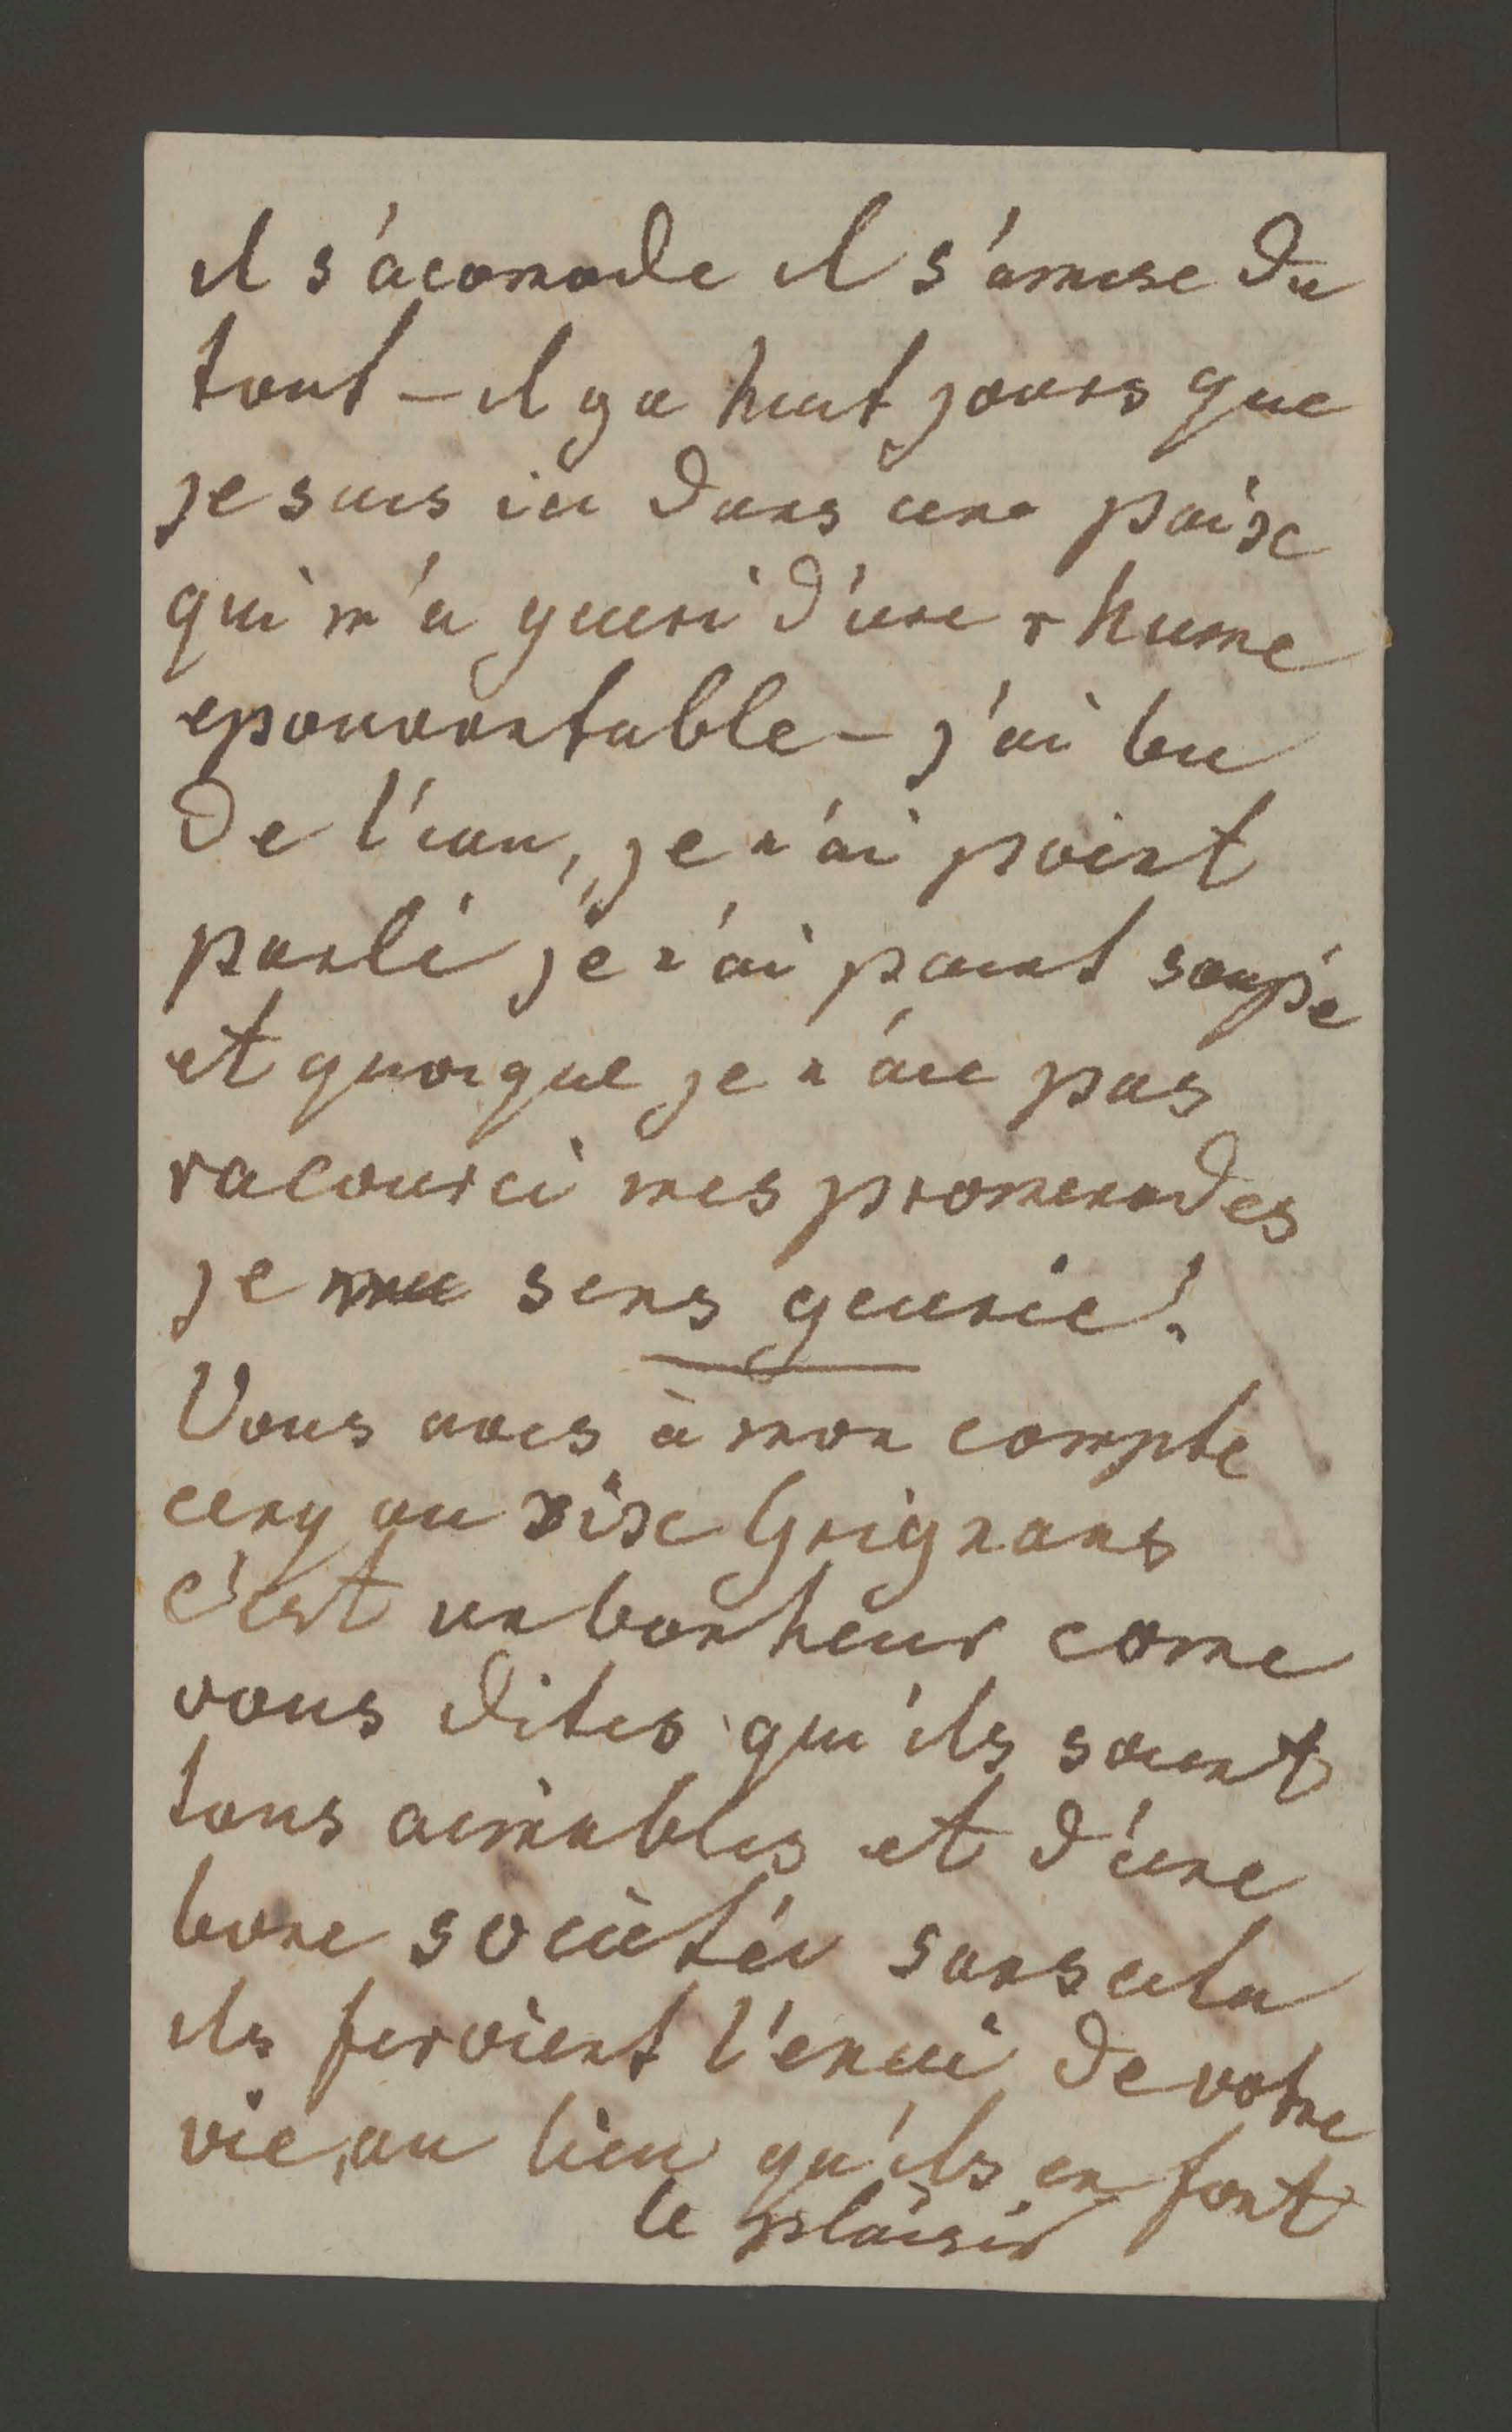 il s'acomode il s'amuse du
tout – il y a huit jours que
je suis ici dans une paix
qui m'a gueri d'une rhume
epouvantable – j'ai bu
de l'eau, je n'ai point
parlé je n'ai point soupé
et quoique je n'aie pas
racourci mes promenades
je me sens guerie!
Vous avés à mon compte
cinq ou six Grignans
c'est un bonheur come
vous dites qu'ils soient
tous aimables et d'une
bone societé sans cela
ils feroient l'enui de votre
vie, au lieu qu'ils en font
le plaisir